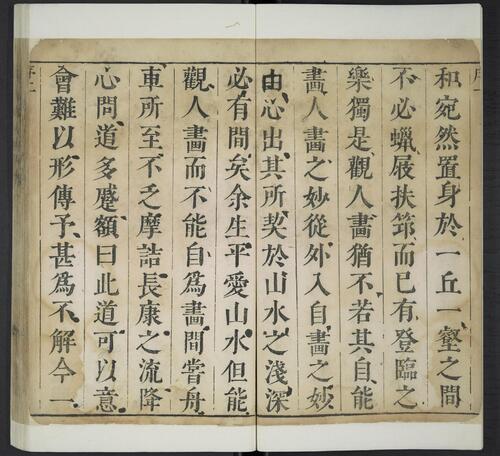 和宛然置身於一丘一壑之間
不必蠟屐扶筇而已有登臨之
樂獨是觀人畫猶不若其自能
畫人畫之妙從外入自畫之妙
由心出其所契於山水之淺深
必有間矣余生平愛山水但能
觀人畫而不能自爲畫間嘗舟
車所至不乏摩詰長康之流降
心問道多蹙額曰此道可以意
會難以形傳予甚爲不解今一